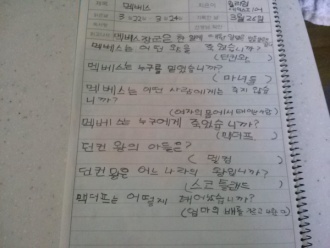 맥베스
3=22= 3=24=
3월 26일
맥베스는 어떤 왕을 죽였습니까?
(던컨왕)
맥베스는 누구를 믿었습니까?
(마녀들)
맥베스는 어떤 사람에게는 죽지 않습
니까?
맥베스는 누구에게 죽었습니까?
(맥더프)
던컨 왕의 아들은?
(맬컴)
던컨 왕은 어느 나라의 왕입니까?
(스코틀랜드)
맥더프는 어떻게 태어났습니까?
(엄마의 배를